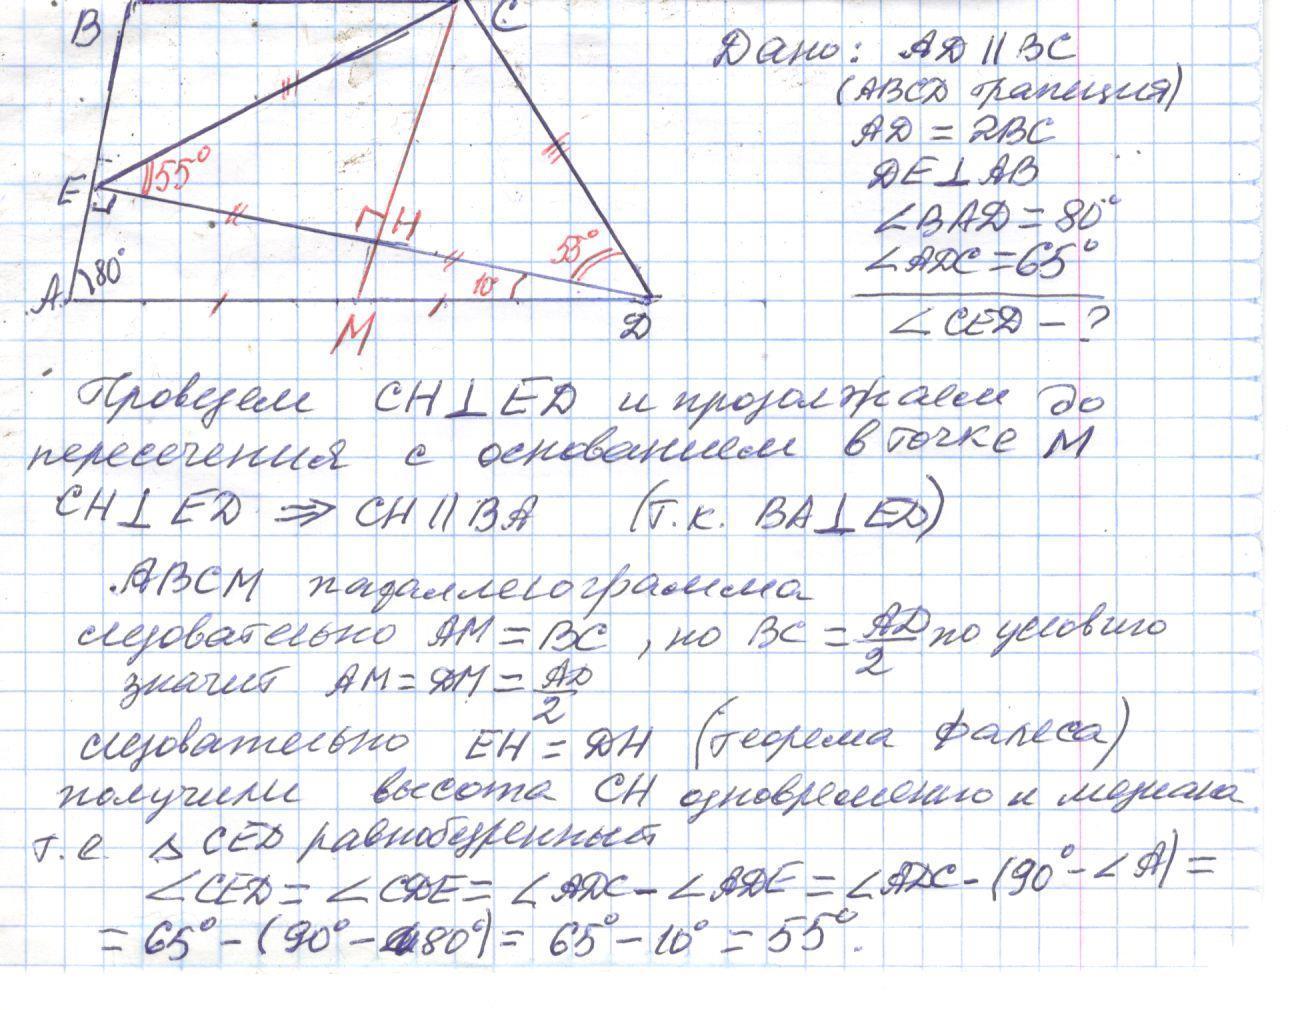 B
C
Дано: AD || BC
(ABCD трапеция)
AD = 2BC
DE ⊥ AB
∠BAD = 80°
∠ADC = 65°
∠CED - ?
E
55°
H
55°
A
80°
10°
M
D
Проведем CH ⊥ ED и продолжаем до
пересечения с основанием в точке M
CH ⊥ ED ⇒ CH || BA (т.к. BA ⊥ ED)
ABCM параллелограмма
следовательно AM = BC, но BC = AD/2 по условию
значит AM = DM = AD/2
следовательно EH = DH (теорема Фалеса)
получили высота CH одновременно и медиана
т.е. △ CED равнобедренный
∠CED = ∠CDE = ∠ADC - ∠ADE = ∠ADC - (90° - ∠A) =
= 65° - (90° - 80°) = 65° - 10° = 55°.